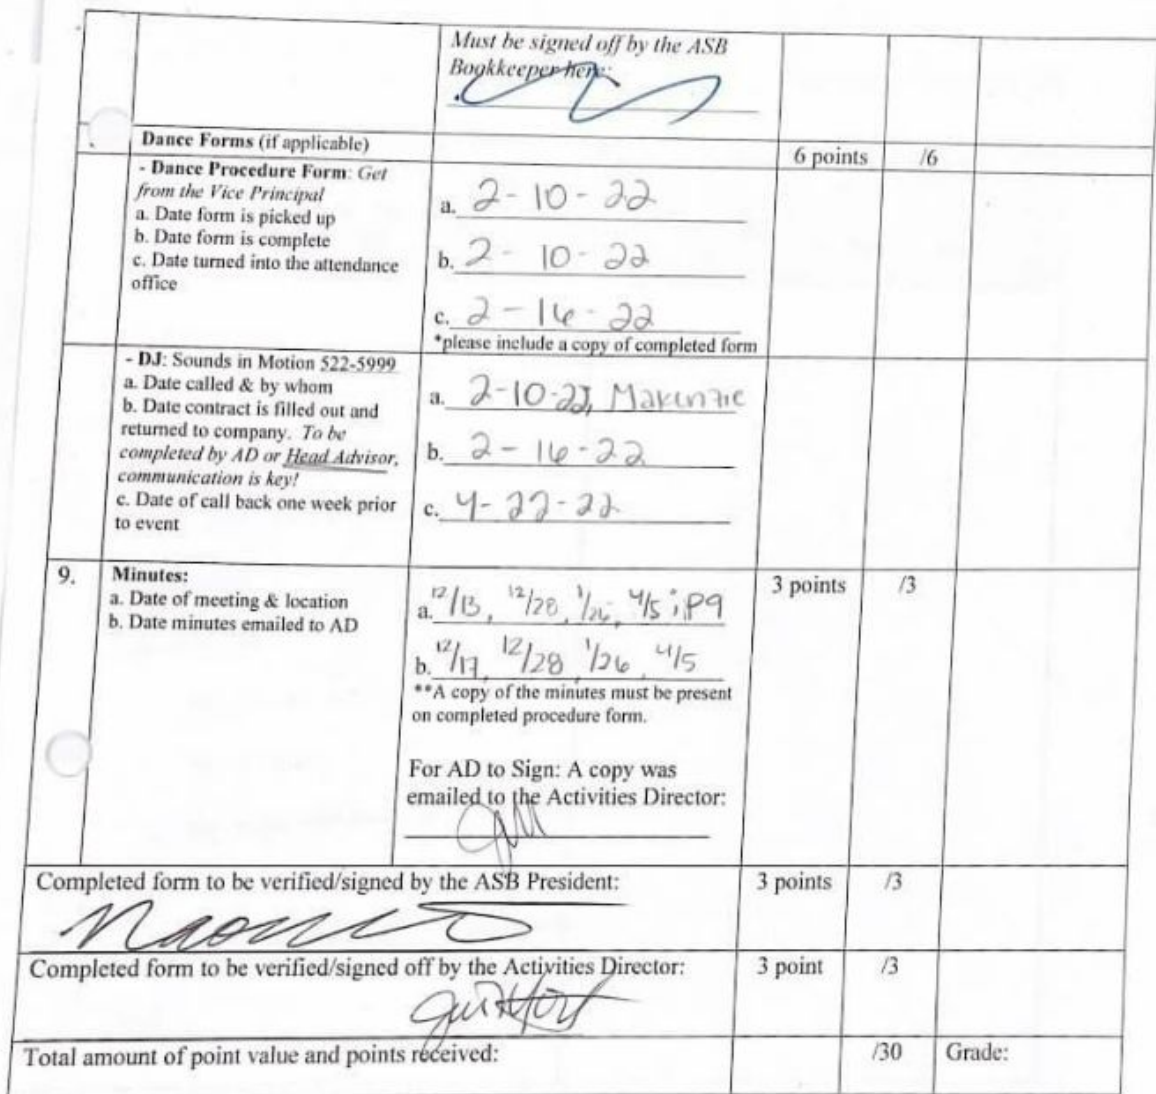 Must be signed off by the ASB
Bookkeeper here:
Dance Forms (if applicable)
6 points
/6
- Dance Procedure Form: Get
from the Vice Principal
a. Date form is picked up
b. Date form is complete
c. Date turned into the attendance
office
a. 2-10-22
b. 2-10-22
c. 2-16-22
*please include a copy of completed form
- DJ: Sounds in Motion 522-5999
a. Date called & by whom
b. Date contract is filled out and
returned to company. To be
completed by AD or Head Advisor,
communication is key!
c. Date of call back one week prior
to event
a. 2-10-22, Makenzie
b. 2-16-22
c. 4-22-22
9.
Minutes:
a. Date of meeting & location
b. Date minutes emailed to AD
a. 12/13, 12/28, 1/26, 4/5 ; P9
b. 12/17, 12/28, 1/26, 4/5
**A copy of the minutes must be present
on completed procedure form.
For AD to Sign: A copy was
emailed to the Activities Director:
3 points
/3
Completed form to be verified/signed by the ASB President:
3 points
/3
Completed form to be verified/signed off by the Activities Director:
3 point
/3
Total amount of point value and points received:
/30
Grade: